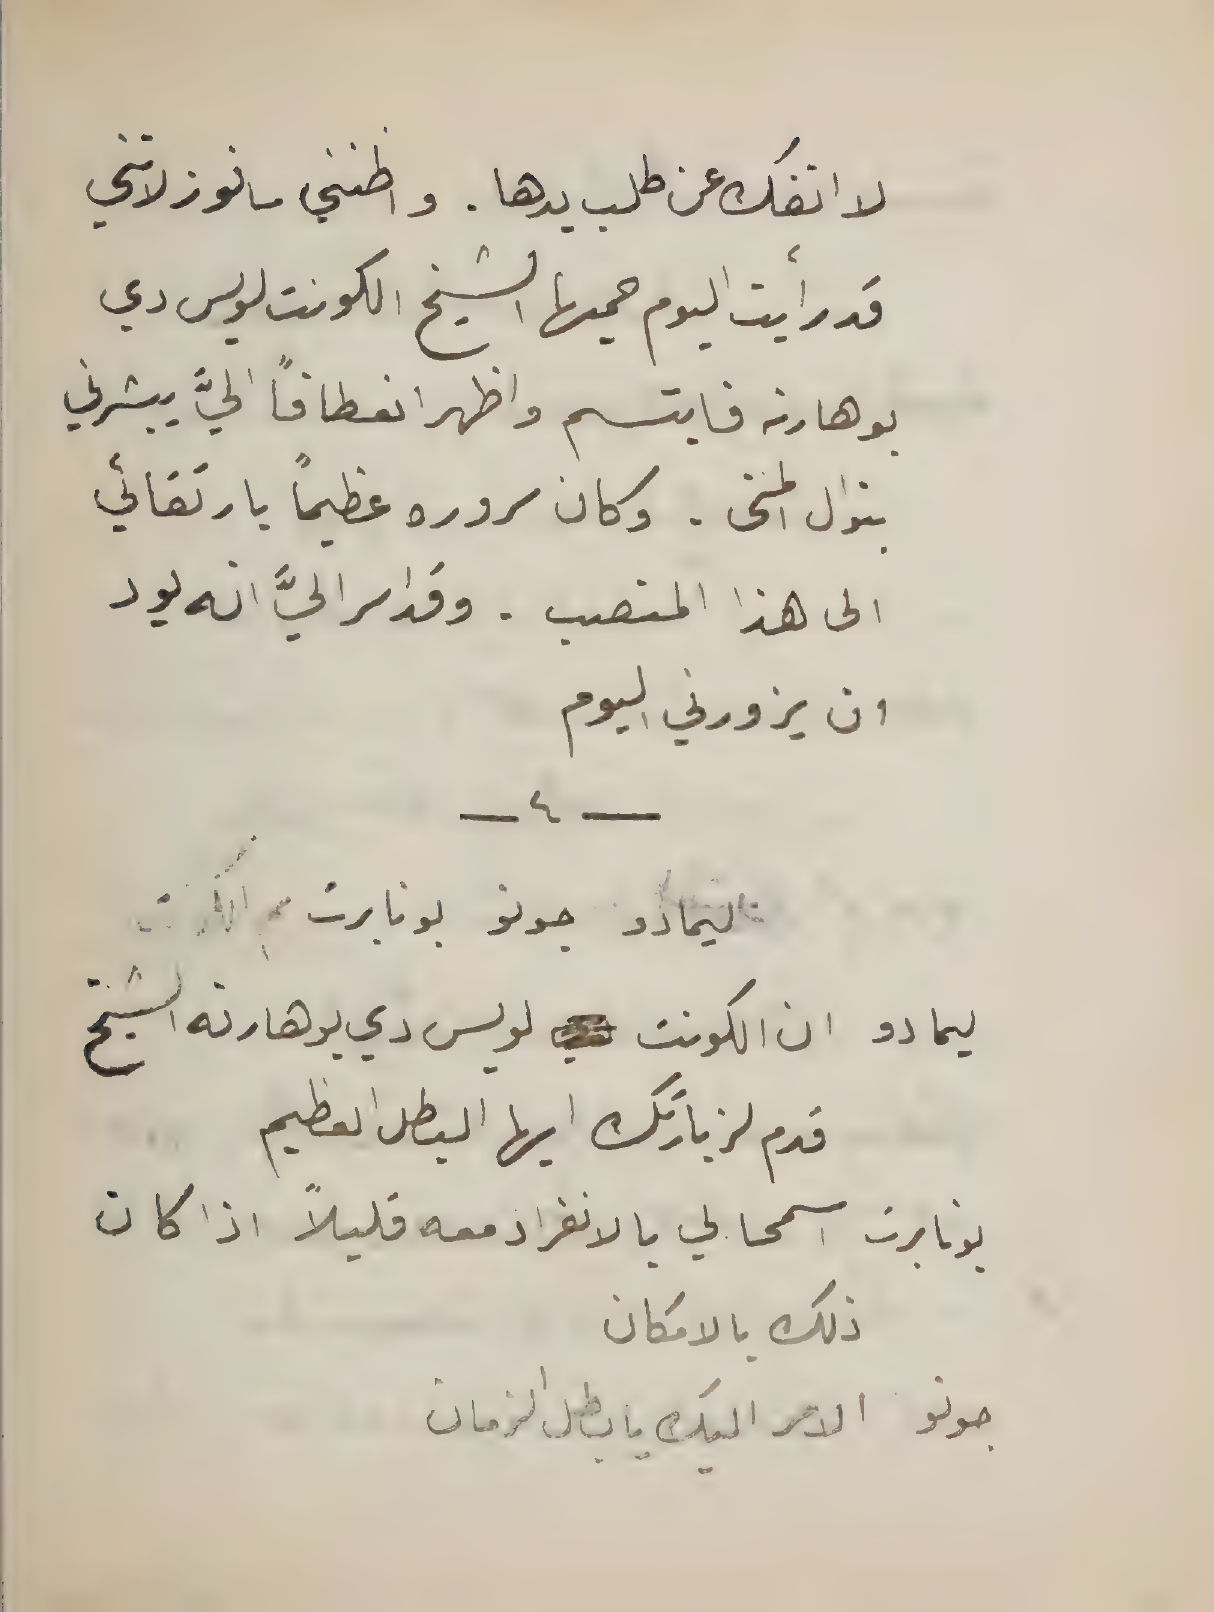 لا انفك عن طلب يدها . واظنني سافوز لانني
قد رأيت اليوم حميها الشيخ الكونت لويس دي
بوهارنه فابتسم واظهر انعطافاً اليَّ يبشرني
بنوال المنى . وكان سروره عظيماً بارتقائي
الى هذا المنصب . وقد اسر اليَّ انه يود
ان يزورني اليوم
— ٤ —
ليمادو جونو بونابرت ثم الكونت
ليمادو ان الكونت لويس دي بوهارنه الشيخ
قدم لزيارتك ايها البطل العظيم
بونابرت اسمحا لي بالانفراد معه قليلاً اذا كان
ذلك بالامكان
جونو الامر اليك يا بطل الزمان